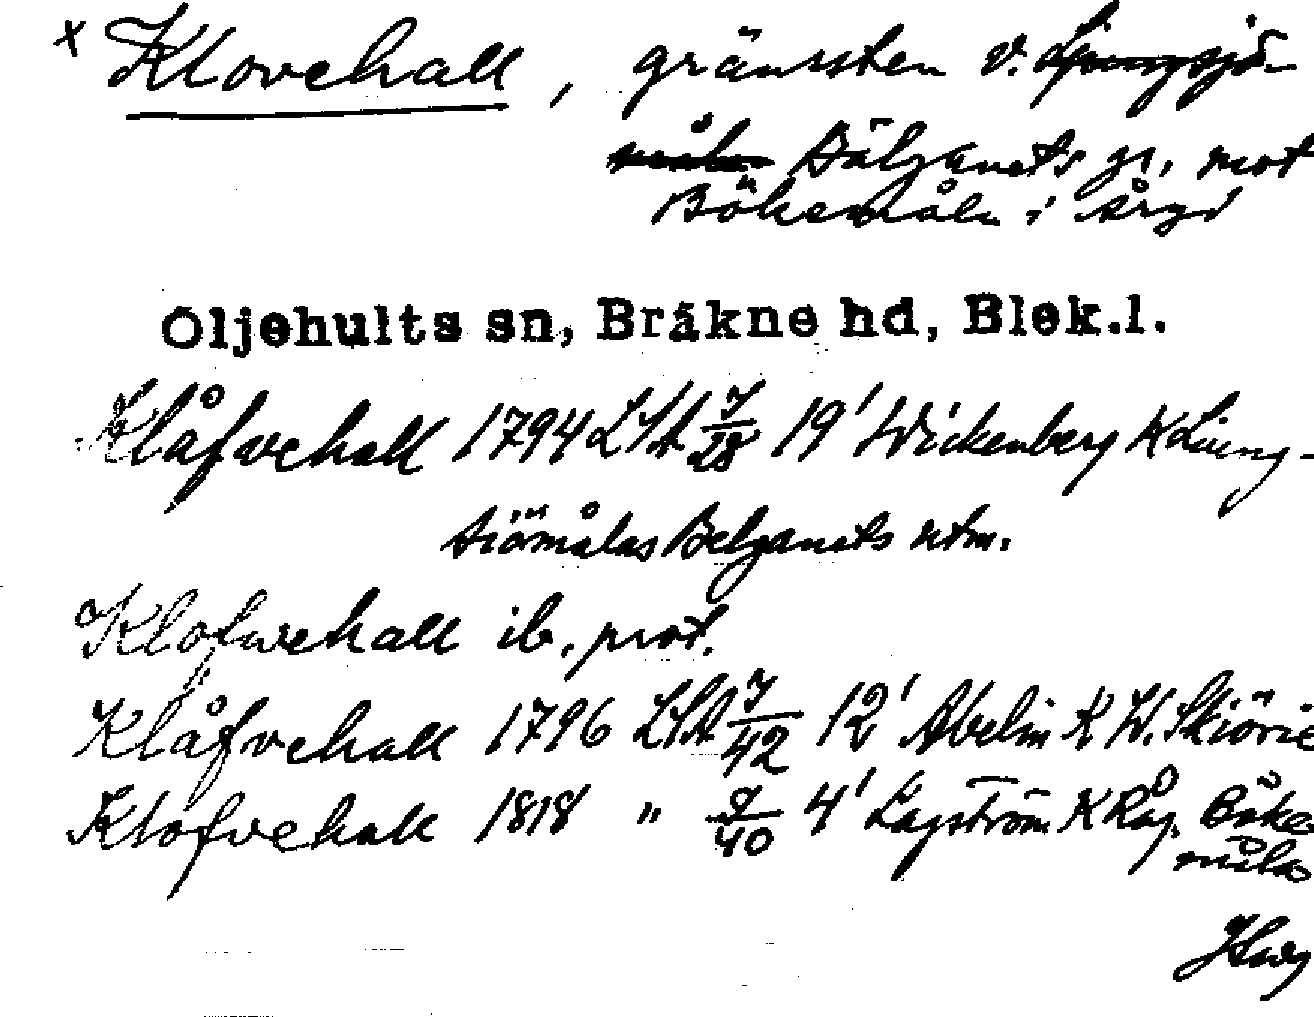 x Klovehall, gränssten v. Ljungsjö-
måla Bälganets gr. mot
Bökemåla i Åryd
Öljehults sn, Bräkne hd, Blek.l.
Klåfvehall 1794 LSA 7/28 19' Wickenberg K Liung-
siömålas Belganets utm.
Klofwehall ib. prot.
Klåfvehall 1796 LSA 7/42 12' Abelin K W. Skiörie
Klofvehall 1818 " 9/40 4' Lagström K Råg. Böke
målas